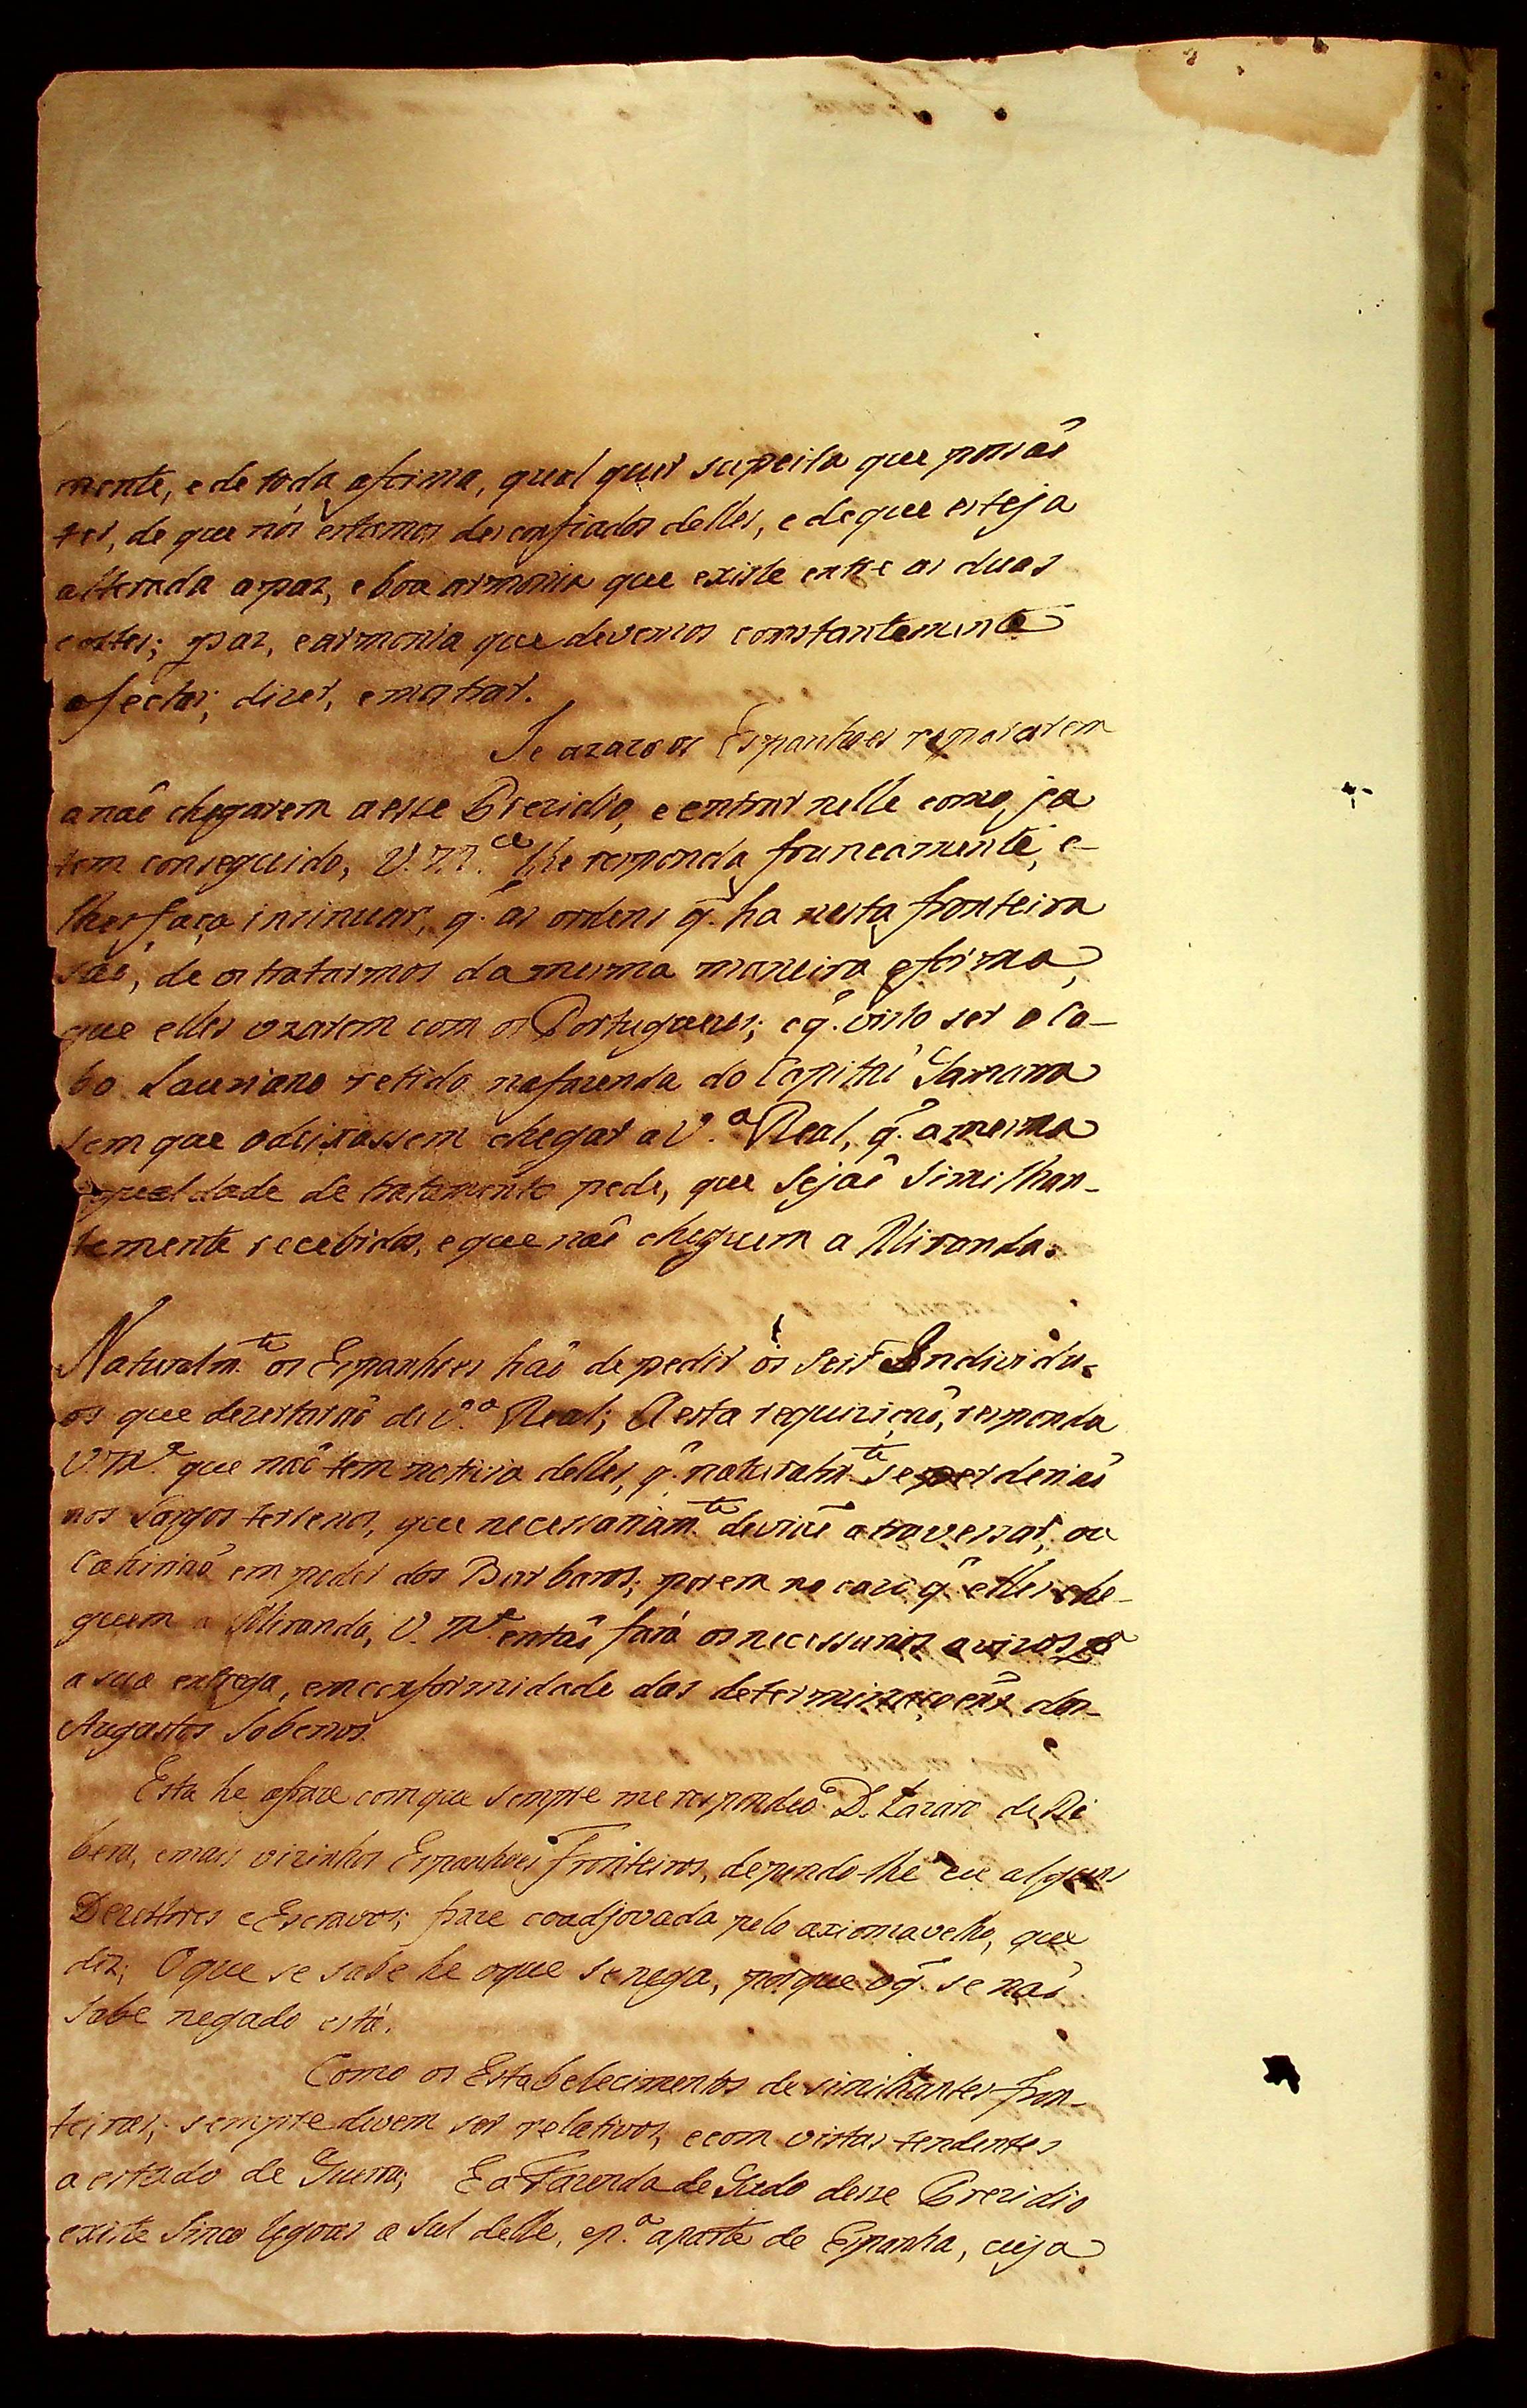 mente, e de toda a forma, qual quer suspeita que possaõ
ter, de que nós estamos desconfiados delles, e de que esteja
alterada a paz, e boa armonia que existe entre as duas
cortes; paz, e armonia que devemos constantemente
afectar, dizer, e mostrar.
Se acazo os Espanhoes repararem
a naõ chegarem a esse Prezidio, e entrar nelle como ja
tem conseguido, V. M.ce lhe responda francamente, e
lhes faça insinuar, q̃. as ordens q̃. ha nesta fronteira
saõ, de os tratarmos da mesma maneira e forma,
que elles uzarem com os Portuguezes; e q̃. visto ser o Ca-
bo Lauriano retido na fazenda do Capitaõ
sem que o deixassem chegar a V.a Real, q̃. a mesma
igualdade de tratamento pede, que sejaõ similhan-
temente recebidos, e que naõ cheguem a Miranda.
Naturalm.te os Espanhoes haõ de pedir os seis Individu-
os que dezertaraõ de V.a Real; A esta requiziçaõ, responda
V. M.e que naõ tem noticia delles, q̃. naturalm.te se perderiaõ
nos largos terrenos, que necessariam.te deviaõ atravessar, ou
Cahiriaõ em poder dos Barbaros; porem no cazo q̃. elles che-
guem a Miranda, V. M.e entaõ fará os necessarios avizos p.a
a sua entrega, em conformidade das determinaçoens dos
Augustos Soberanos.
Esta he a fraze com que sempre me respondeo D. Lazaro de Ri
bera, e mais vizinhos Espanhoes Fronteiros, depondo-lhe eu alguns
Dezertores e Escravos; fraze coadjovada pelo axioma velho, que
diz; O que se sabe he o que se nega, porque o q̃. se naõ
sabe negado está.
Como os Estabelecimentos de similhantes fron-
teiras; sempre devem ser relativos, e com vistas tendentes
a estado de Guerra; E a Fazenda de Gado desse Prezidio
existe sinco legoas a Sul delle, e p.a a parte de Espanha, cuja